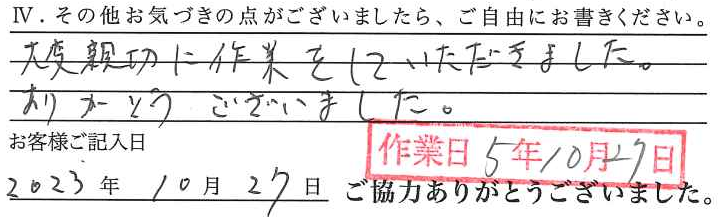 Ⅳ．その他お気づきの点がございましたら、ご自由にお書きください。
大変親切に作業をしていただきました。
ありがとうございました。
お客様ご記入日
作業日 5年10月27日
2023年 10月 27日 ご協力ありがとうございました。